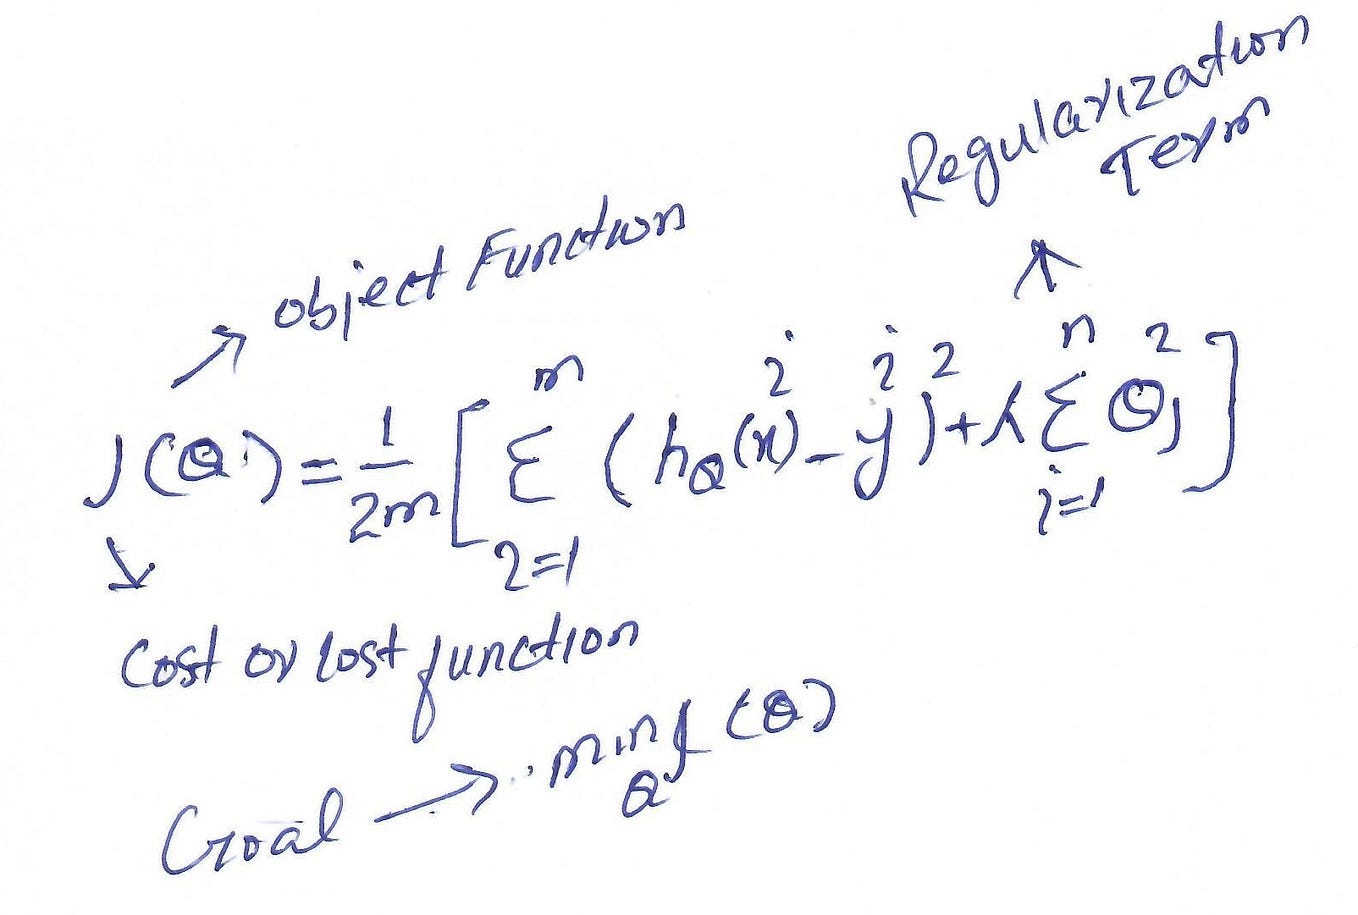 Regularization
Term
object Function
J(θ) = 1/2m [ Σ_{i=1}^{m} (h_θ(x)^i - y^i)^2 + λ Σ_{i=1}^{n} θ_j^2 ]
Cost or lost function
Goal → min_θ J(θ)